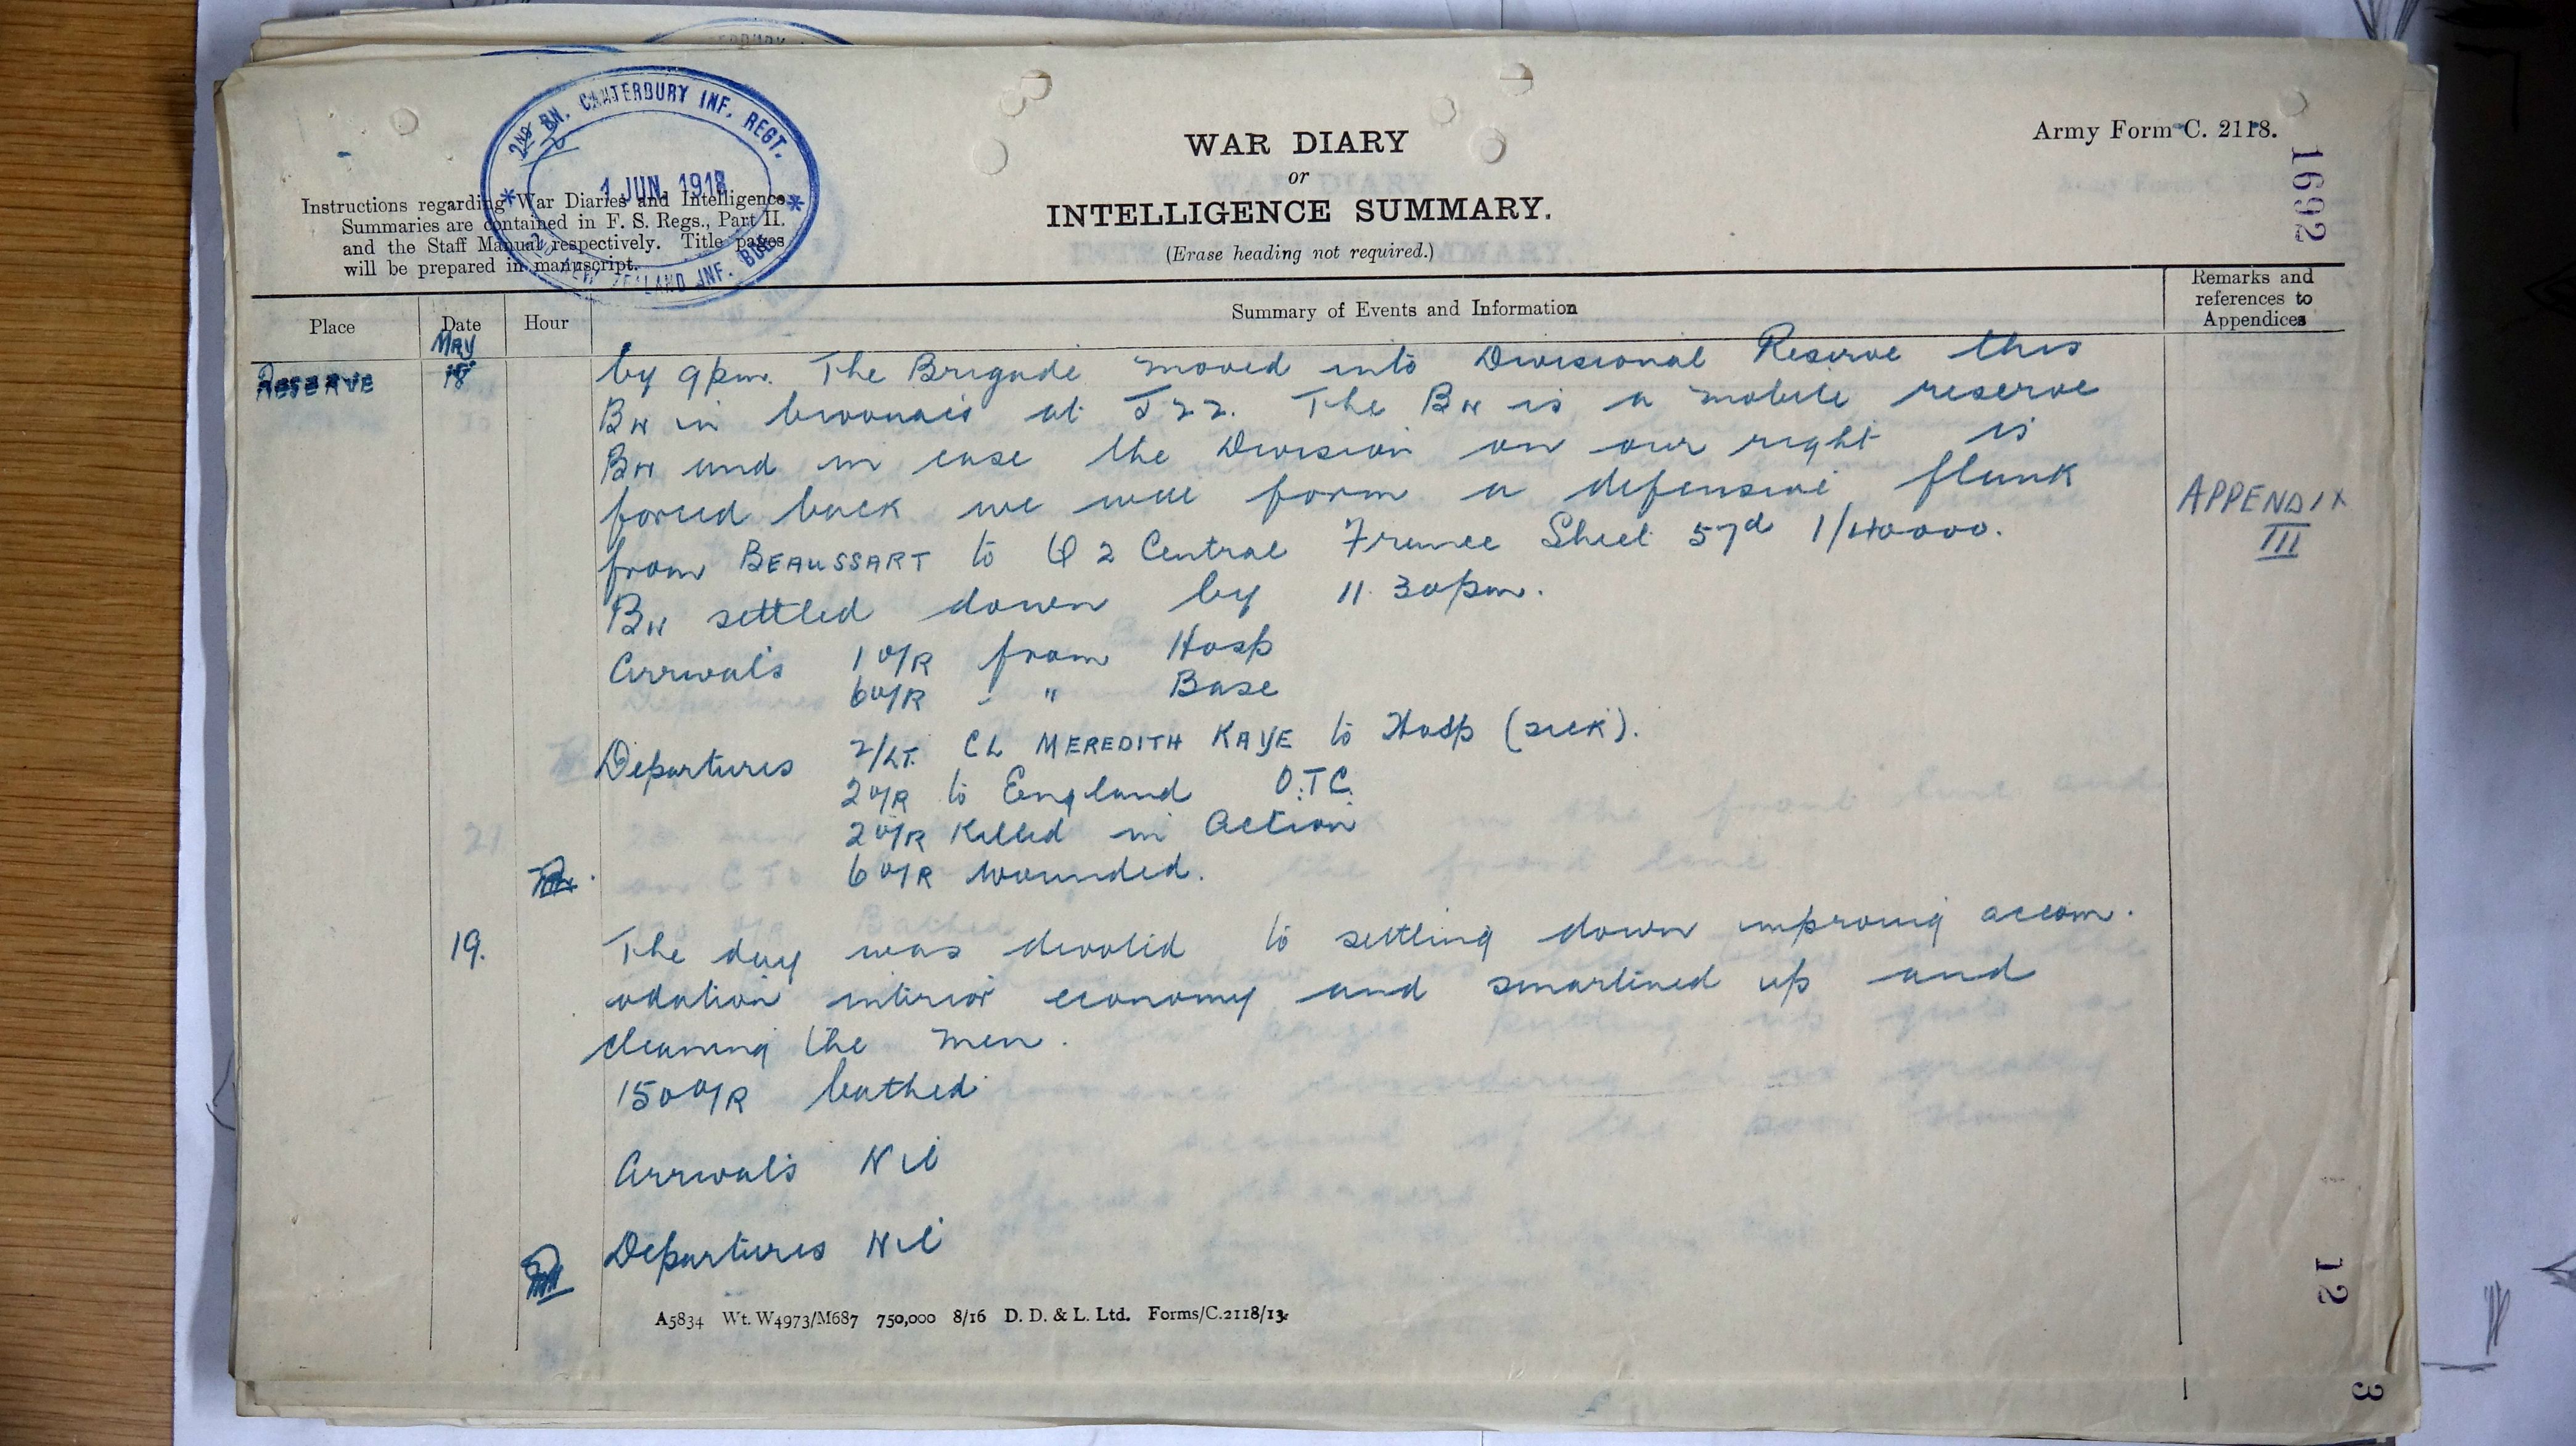 2ND BN. CANTERBURY INF. REGT.
1 JUN. 1918
2ND NEW ZEALAND INF. BDE.
Army Form C. 2118.
WAR DIARY
or
INTELLIGENCE SUMMARY.
(Erase heading not required.)
Instructions regarding War Diaries and Intelligence
Summaries are contained in F. S. Regs., Part II.
and the Staff Manual respectively. Title pages
will be prepared in manuscript.
1692
Place Date Hour Summary of Events and Information Remarks and references to Appendices
May
RESERVE 18 by 9pm. The Brigade moved into Divisional Reserve this
BN in bivouacs at J22. The BN is a mobile reserve
BN and in case the Division on our right is
forced back we will form a defensive flank
from BEAUSSART to Q 2 Central France Sheet 57d 1/40000.
APPENDIX
III
BN settled down by 11 30pm.
Arrivals 1 O/R from Hosp
6 O/R " Base
Departures 2/LT. CL MEREDITH KAYE to Hosp (sick).
2 O/R to England O.T.C.
2 O/R Killed in Action
6 O/R wounded.
19. The day was devoted to settling down improving accom.
odation interior economy and smartined up and
cleaning the men.
150 O/R bathed
Arrivals Nil
Departures Nil
A5834 Wt. W4973/M687 750,000 8/16 D. D. & L. Ltd. Forms/C.2118/13.
12
3